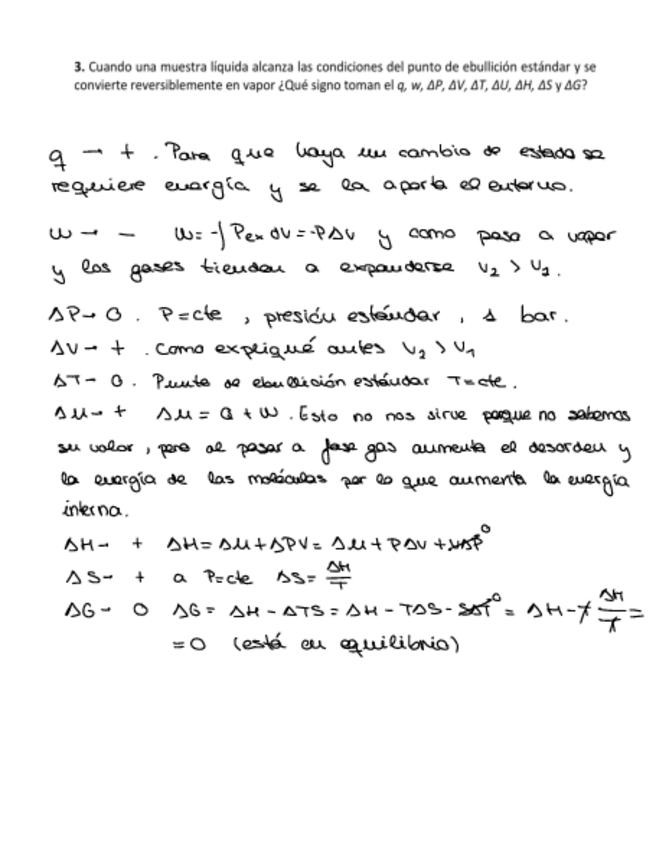 3. Cuando una muestra líquida alcanza las condiciones del punto de ebullición estándar y se
convierte reversiblemente en vapor ¿Qué signo toman el q, w, ΔP, ΔV, ΔT, ΔU, ΔH, ΔS y ΔG?
q → + . Para que haya un cambio de estado se
requiere energía y se la aporta el entorno.
w → − W = -∫ Pex dV = -PΔV y como pasa a vapor
y los gases tienden a expanderse V2 > V1.
ΔP → 0 . P = cte , presión estándar , 1 bar.
ΔV → + . Como expliqué antes V2 > V1
ΔT → 0 . Punto de ebullición estándar T = cte.
Δu → + Δu = Q + W . Esto no nos sirve porque no sabemos
su valor , pero al pasar a fase gas aumenta el desorden y
la energía de las moléculas por lo que aumenta la energía
interna.
ΔH → + ΔH = Δu + ΔPV = Δu + PΔV + VΔP 0
ΔS → + a P=cte ΔS = ΔH/T
ΔG → 0 ΔG = ΔH - ΔTS = ΔH - TΔS - SΔT 0 = ΔH - T ΔH/T =
= 0 (está en equilibrio)